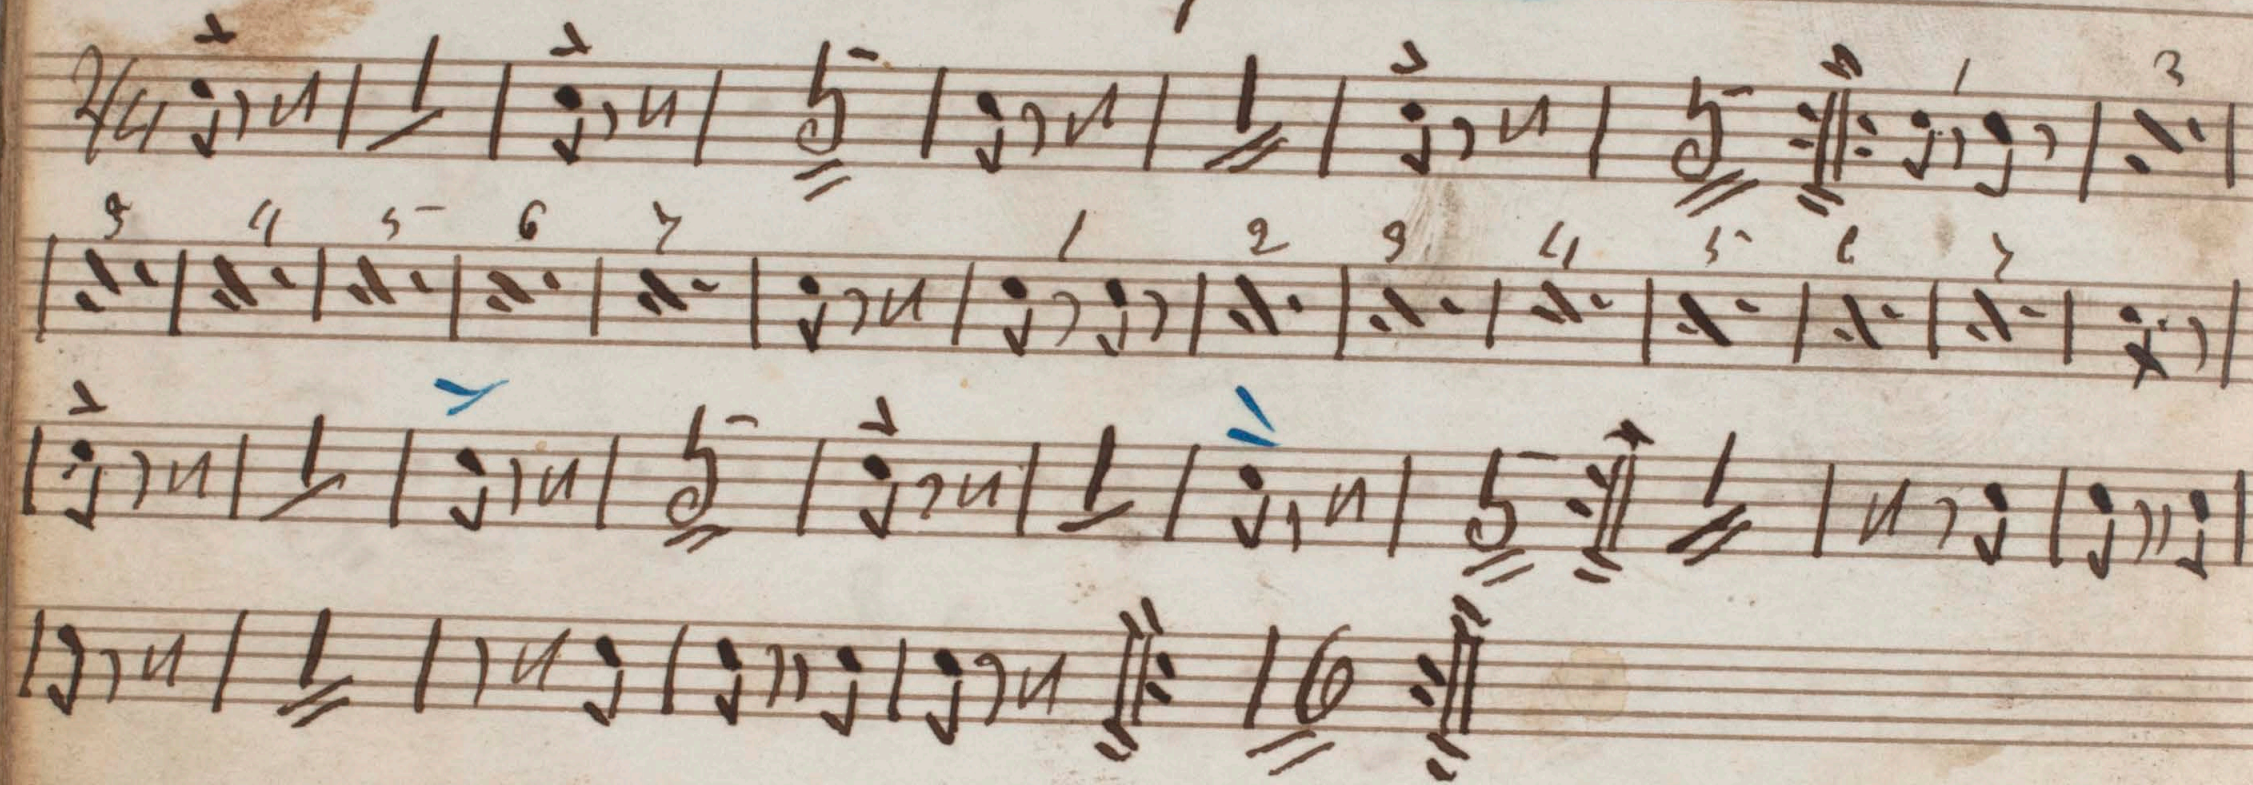 2/4 1 5 1 5 1 3
3 4 5 6 7 1 2 3 4 5 6 7
1 5 1 5 1
1 16